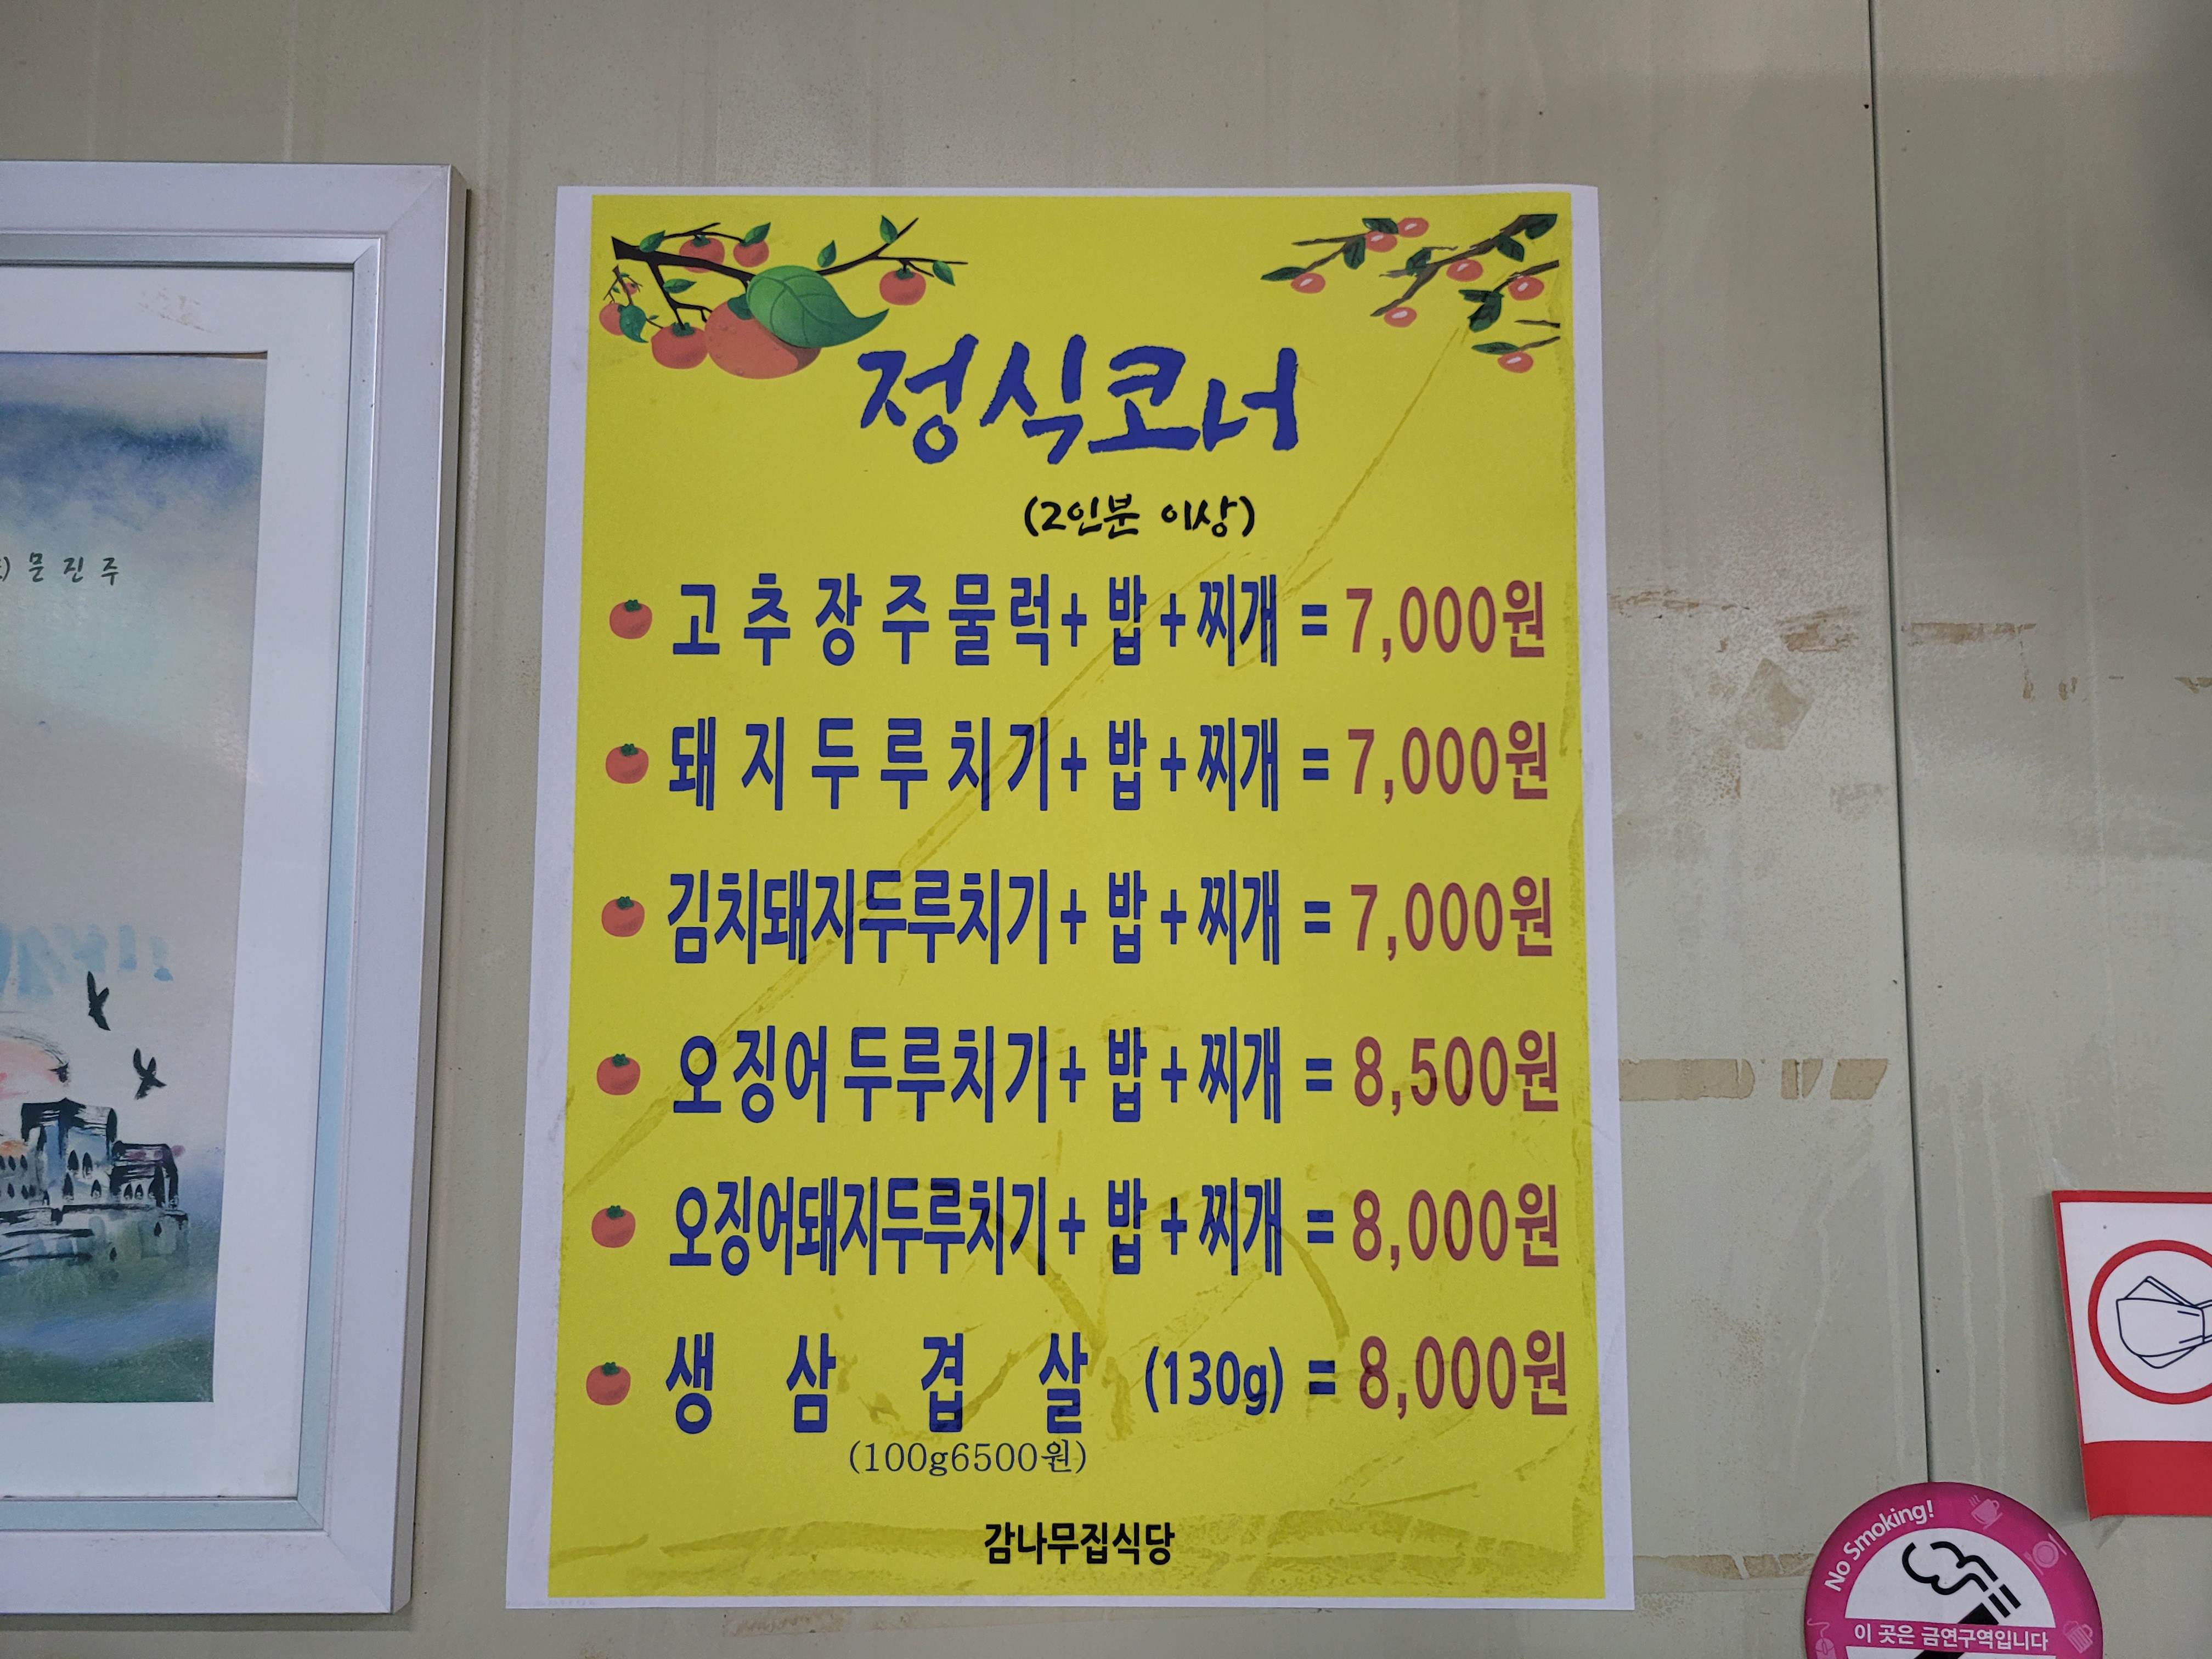 문 진 주
정식코너
(2인분 이상)
고추장주물럭+ 밥+찌개 = 7,000원
돼지두루치기+ 밥+찌개 = 7,000원
김치돼지두루치기+ 밥+찌개 = 7,000원
오징어두루치기+ 밥+찌개 = 8,500원
오징어돼지두루치기+ 밥+찌개 = 8,000원
생삼겹살 (130g) = 8,000원
(100g6500원)
감나무집식당
No Smoking!
이 곳은 금연구역입니다